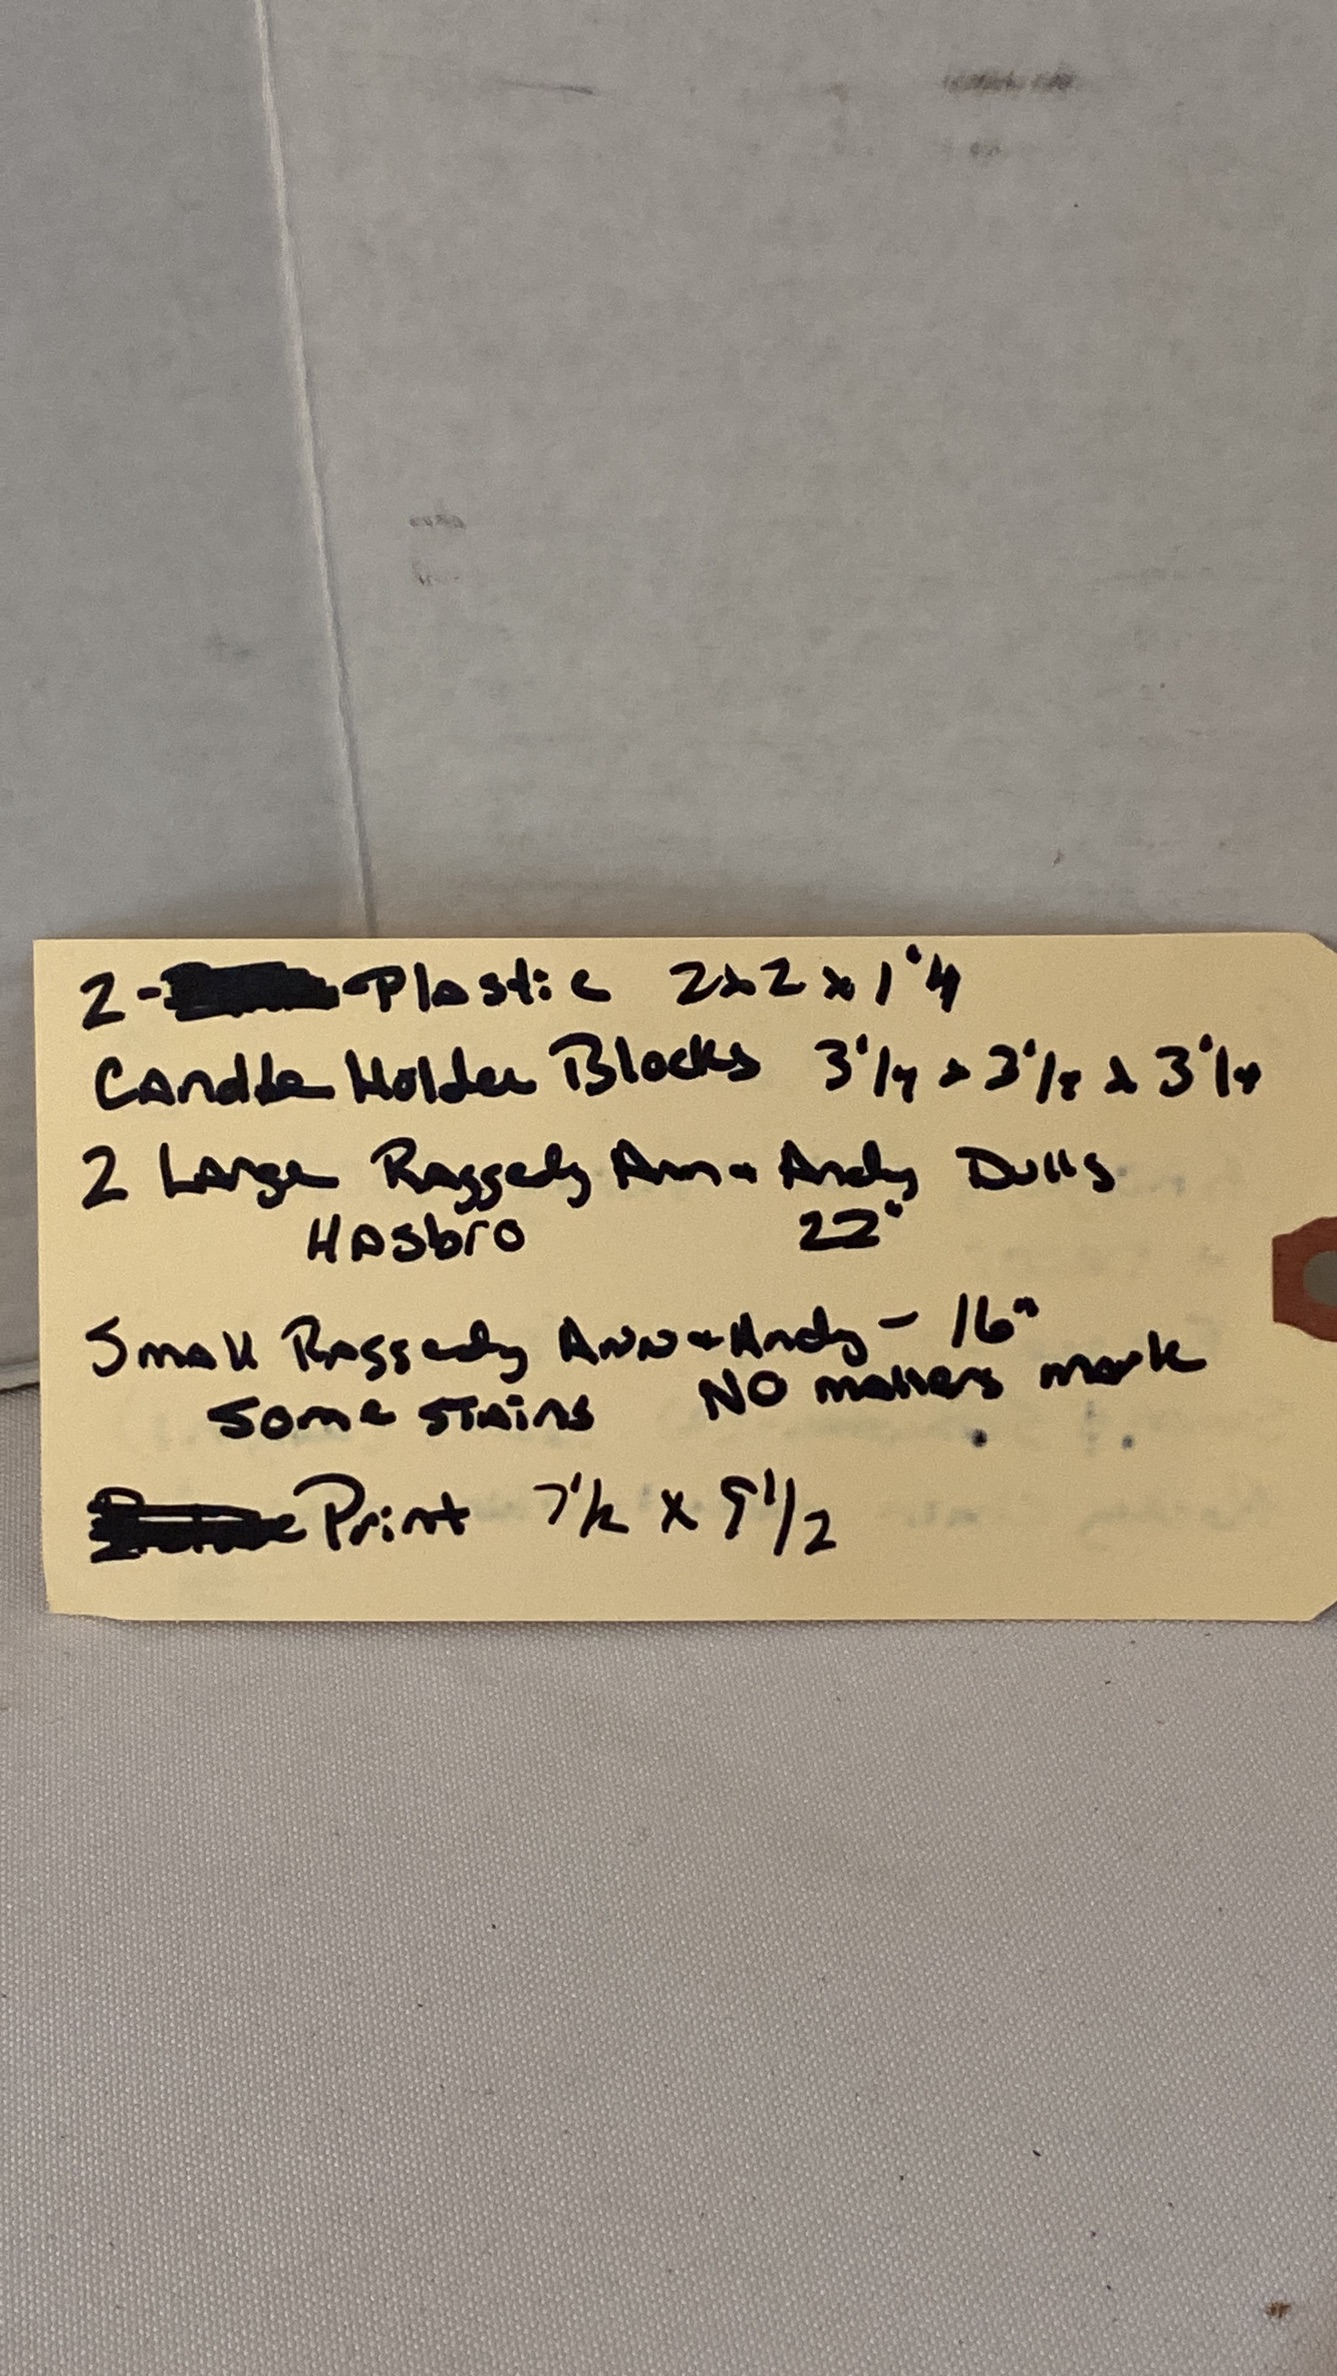 2- Plastic 2x2x1'4
Candle Holder Blocks 3 1/4 x 3 1/2 x 3 1/4
2 Large Raggedy Ann + Andy Dolls
Hasbro 22"
Small Raggedy Ann + Andy - 16"
Some stains NO makers mark
Print 7 1/2 x 9 1/2